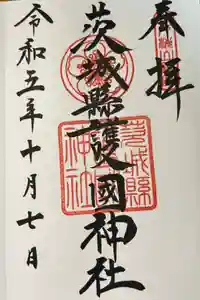 奉拝
茨城縣護國神社
令和五年十月七日
茨城縣
神社